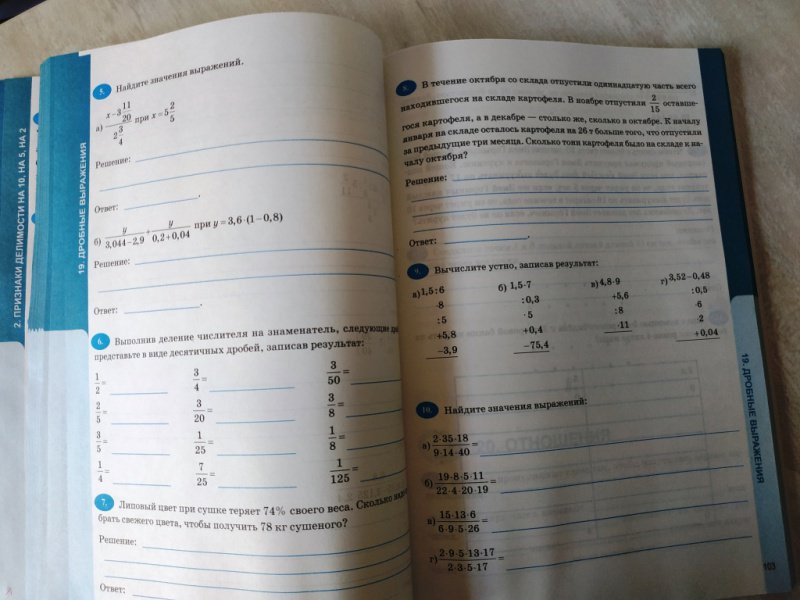 2. ПРИЗНАКИ ДЕЛИМОСТИ НА 10, НА 5, НА 2
19. ДРОБНЫЕ ВЫРАЖЕНИЯ
5. Найдите значения выражений.
а) (x − 3 11/20) / (2 3/4) при x = 5 2/5
Решение:
Ответ: .
б) y/(3,044−2,9) + y/(0,2+0,04) при y = 3,6·(1−0,8)
Решение:
Ответ: .
6. Выполнив деление числителя на знаменатель, следующие
представьте в виде десятичных дробей, записав результат:
1/2= 3/4= 3/50=
2/5= 3/20= 3/8=
3/5= 1/25= 1/8=
1/4= 7/25= 1/125=
7. Липовый цвет при сушке теряет 74% своего веса. Сколько
брать свежего цвета, чтобы получить 78 кг сушеного?
Решение:
Ответ:
8. В течение октября со склада отпустили одиннадцатую часть всего
находившегося на складе картофеля. В ноябре отпустили 2/15 оставше-
гося картофеля, а в декабре — столько же, сколько в октябре. К началу
января на складе осталось картофеля на 26 т больше того, что отпустили
за предыдущие три месяца. Сколько тонн картофеля было на складе к на-
чалу октября?
Решение:
Ответ: .
9. Вычислите устно, записав результат:
а) 1,5:6 б) 1,5·7 в) 4,8·9 г) 3,52−0,48
·8 :0,3 +5,6 :0,5
:5 ·5 :8 ·6
+5,8 +0,4 ·11 ·2
−3,9 −75,4 +0,04
10. Найдите значения выражений:
а) 2·35·18/9·14·40=
б) 19·8·5·11/22·4·20·19=
в) 15·13·6/6·9·5·26=
г) 2·9·5·13·17/2·3·5·17=
19. ДРОБНЫЕ ВЫРАЖЕНИЯ
103